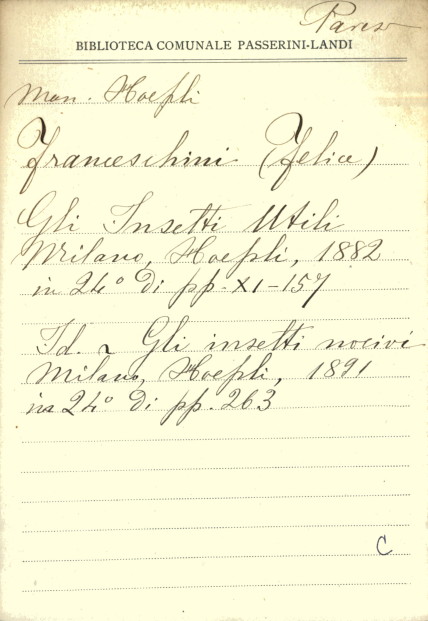 Pares
BIBLIOTECA COMUNALE PASSERINI-LANDI
Man. Hoepli
Franceschini (Felice)
Gli Insetti Utili
Milano, Hoepli, 1882
in 24° di pp. XI-157
Id. ~ Gli insetti nocivi
Milano, Hoepli, 1891
in 24° di pp. 263
C